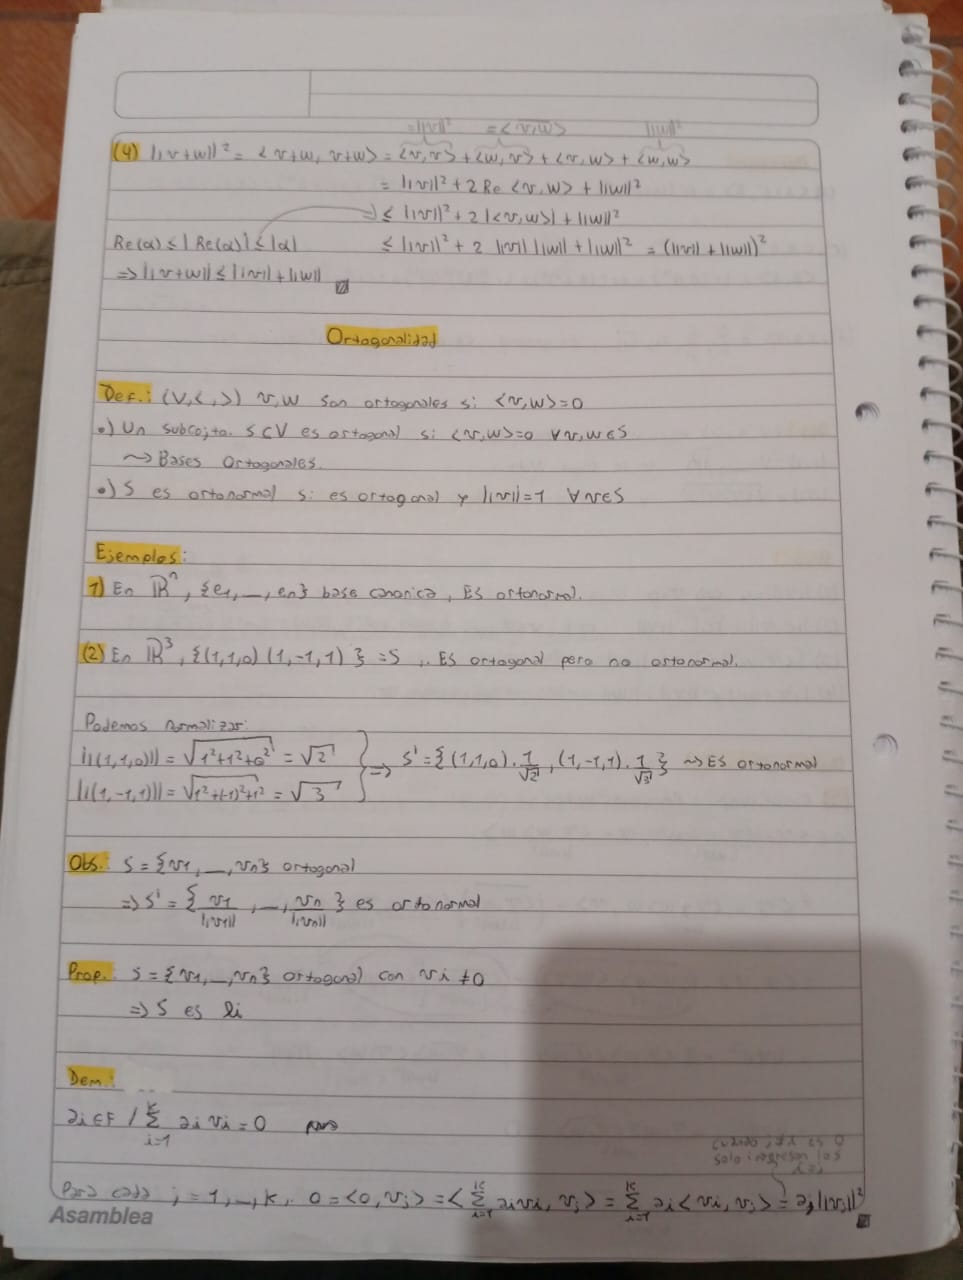 =||v||² =<v,w> ||w||²
(4) ||v+w||² = <v+w, v+w> = <v,v> + <w,v> + <v,w> + <w,w>
= ||v||² + 2 Re <v,w> + ||w||²
=> ≤ ||v||² + 2 |<v,w>| + ||w||²
Re(α) ≤ |Re(α)| ≤ |α| ≤ ||v||² + 2 ||v|| ||w|| + ||w||² = (||v|| + ||w||)²
=> ||v+w|| ≤ ||v|| + ||w||
Ortogonalidad
Def.: (V,<,>) v,w son ortogonales si <v,w>=0
•) Un subcojto. S⊂V es ortogonal si <v,w>=0 ∀v,w∈S
~> Bases Ortogonales.
•) S es ortonormal si es ortogonal y ||v||=1 ∀v∈S
Ejemplos:
1) En ℝⁿ, {e1,_,en} base canonica, Es ortonormal.
(2) En ℝ³, {(1,1,0) (1,-1,1)} = S . Es ortogonal pero no ortonormal.
Podemos normalizar:
||(1,1,0)|| = √1²+1²+0² = √2
||(1,-1,1)|| = √1²+(-1)²+1² = √3 } => S' = {(1,1,0).1/√2, (1,-1,1).1/√3} ~> Es ortonormal
Obs.: S = {v1,_,vn} ortogonal
=> S' = {v1/||v1||,_,vn/||vn||} es ortonormal
Prop.: S = {v1,_,vn} ortogonal con vi ≠ 0
=> S es li
Dem.:
ai ∈ F / Σ_{i=1}^{k} ai vi = 0
cuando i≠j es 0
solo ingresan los
i=j
Para cada j = 1,_,k. 0 = <0,vj> = <Σ_{i=1}^{k} aivi, vj> = Σ_{i=1}^{k} ai <vi,vj> = aj ||vj||²
Asamblea